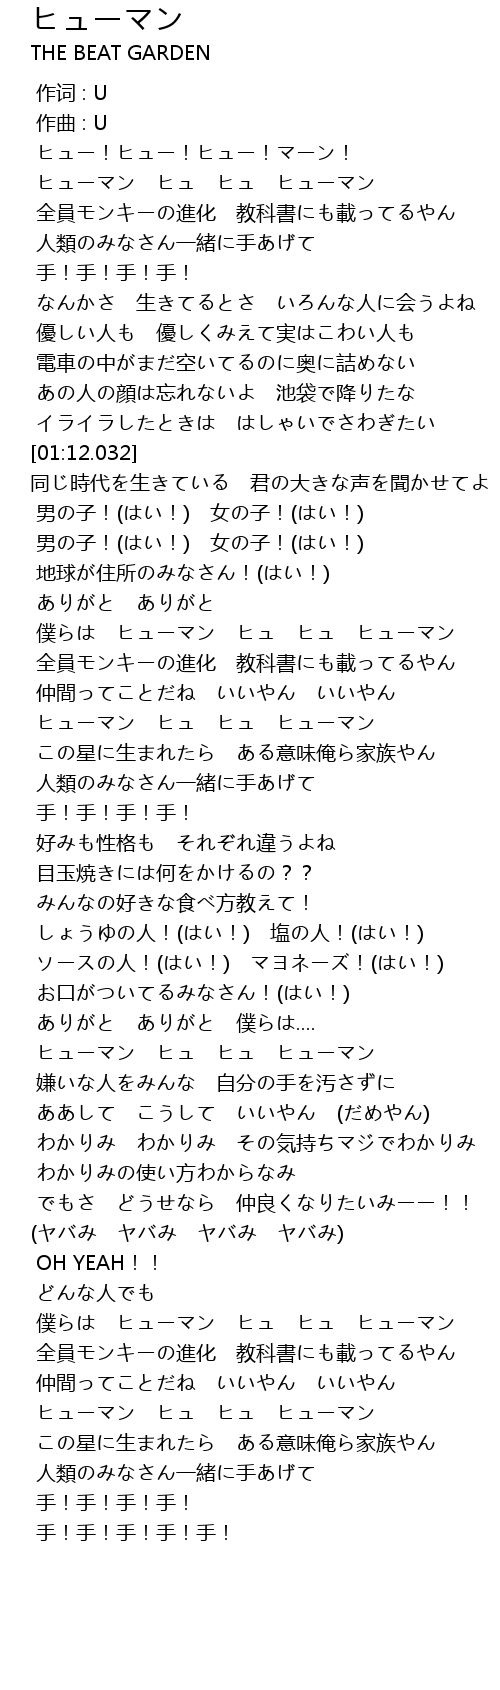 ヒューマン
THE BEAT GARDEN
作词 : U
作曲 : U
ヒュー！ヒュー！ヒュー！マーン！
ヒューマン　ヒュ　ヒュ　ヒューマン
全員モンキーの進化　教科書にも載ってるやん
人類のみなさん一緒に手あげて
手！手！手！手！
なんかさ　生きてるとさ　いろんな人に会うよね
優しい人も　優しくみえて実はこわい人も
電車の中がまだ空いてるのに奥に詰めない
あの人の顔は忘れないよ　池袋で降りたな
イライラしたときは　はしゃいでさわぎたい
[01:12.032]
同じ時代を生きている　君の大きな声を聞かせてよ
男の子！(はい！)　女の子！(はい！)
男の子！(はい！)　女の子！(はい！)
地球が住所のみなさん！(はい！)
ありがと　ありがと
僕らは　ヒューマン　ヒュ　ヒュ　ヒューマン
全員モンキーの進化　教科書にも載ってるやん
仲間ってことだね　いいやん　いいやん
ヒューマン　ヒュ　ヒュ　ヒューマン
この星に生まれたら　ある意味俺ら家族やん
人類のみなさん一緒に手あげて
手！手！手！手！
好みも性格も　それぞれ違うよね
目玉焼きには何をかけるの？？
みんなの好きな食べ方教えて！
しょうゆの人！(はい！)　塩の人！(はい！)
ソースの人！(はい！)　マヨネーズ！(はい！)
お口がついてるみなさん！(はい！)
ありがと　ありがと　僕らは....
ヒューマン　ヒュ　ヒュ　ヒューマン
嫌いな人をみんな　自分の手を汚さずに
ああして　こうして　いいやん　(だめやん)
わかりみ　わかりみ　その気持ちマジでわかりみ
わかりみの使い方わからなみ
でもさ　どうせなら　仲良くなりたいみーー！！
(ヤバみ　ヤバみ　ヤバみ　ヤバみ)
OH YEAH！！
どんな人でも
僕らは　ヒューマン　ヒュ　ヒュ　ヒューマン
全員モンキーの進化　教科書にも載ってるやん
仲間ってことだね　いいやん　いいやん
ヒューマン　ヒュ　ヒュ　ヒューマン
この星に生まれたら　ある意味俺ら家族やん
人類のみなさん一緒に手あげて
手！手！手！手！
手！手！手！手！手！